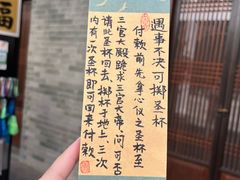 遇事不决可掷圣杯
付款前先拿心仪之圣杯至
三官大殿跪求三官大帝,问可否
请此圣杯回去,掷杯于地上,三次
内有一次圣杯即可回来付款